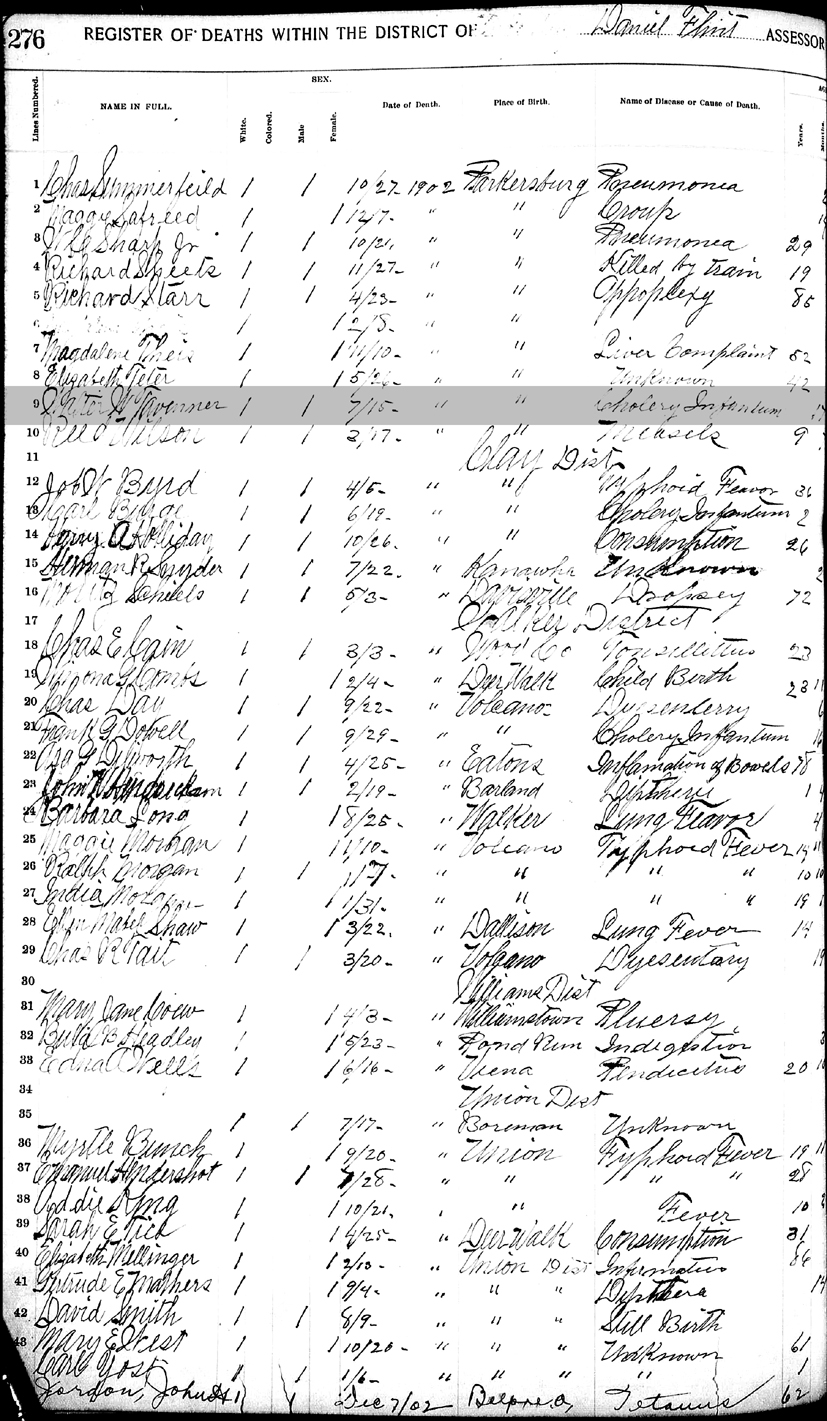 276 REGISTER OF DEATHS WITHIN THE DISTRICT OF Daniel Flint ASSESSOR
SEX.
Lines Numbered. NAME IN FULL. White. Colored. Male Female. Date of Death. Place of Birth. Name of Disease or Cause of Death. Years. Months.
1 Chas Summerfeild 1 1 10/27 1902 Parkersburg Pneumonea
2 Maggy Safreed 1 1 12/7- " " Croup
3 Sharp Jr 1 1 10/21, " " Pneumonea 29
4 Richard Sheets 1 1 11/27- " " Killed by train 19
5 Richard Starr 1 1 4/23- " " Appoplexy 85
6 1 1 2/8- " "
7 Magdalene Theis 1 1 11/10- " " Liver Complaint 52
8 Elizabeth Teter 1 1 5/26- " " Unknown 42
9 Tavenner 1 1 7/15- " " Cholery Infantum
10 Wilson 1 1 3/17- " " Measels 9
11 Clay Dist
12 Job W Byrd 1 1 4/5- " " Typhoid Feavor
13 1 1 6/19- " " Cholery Infantum 2
14 Holliday 1 1 10/26. " " Consumption 26
15 Herman R Snyder 1 1 7/22. " Kanawha Unknown
16 1 1 5/3- " Davisville Dropsey 72
17 Walker District
18 Chas E Cain 1 1 3/3- " Wood Co Tonsillittus 23
19 Combs 1 1 2/4- " Deer Walk Child Berth 23
20 Chas Day 1 1 9/22- " Volcano- Dyesenterry
21 Frank G Dowell 1 1 9/29- " " Cholery Infantum
22 Asa G Dilworth 1 1 4/25- " Eatons Inflamation of Bowels
23 John Hendrickson 1 1 2/19- " Borland Diptherie 1
24 Barbara Long 1 1 8/25- " Walker Lung Feavor
25 Maggie Morgan 1 1 1/10- " Volcano Typphoid Fever 14
26 Ralph Morgan 1 1/17- " " " " 10
27 India Morgan 1 1/31- " " " " 19
28 Ellen Mabel Shaw 1 1 3/22. " Dallison Lung Fever 14
29 Chas R Tait 1 1 3/20- " Volcano Dyesentary
30 Williams Dist
31 Mary Jane 1 1 4/3- " Williamstown Pluersy
32 B Headley 1 1 5/23- " Pond Run Indigestion
33 Edna A Wells 1 1 6/16- " Viena Pendicetus 20
34 Union Dist
35 1 1 7/17- " Boreman Unknown
36 Myrtle Bunch 1 1 9/20- " Union Typhoid Fever 19
37 Emanuel Hendershot 1 1 /28- " " " " 28
38 Oddie King 1 1 10/21, " " Fever 10
39 Sarah E Tice 1 1 4/25- " Deer Walk Consumption 31
40 Elizabeth Mellinger 1 1 2/13- " Union Dist 86
41 Gertrude E Mathers 1 1 9/4- " " " Dipthera
42 David Smith 1 1 8/9- " " " Still Birth
43 Mary E West 1 1 10/20- " " " Unknown 61
Carl Yost " 1 1/6- " " " " 1
Gordon, John 1 Dec 7/02 Belpre O, Tetanus 62